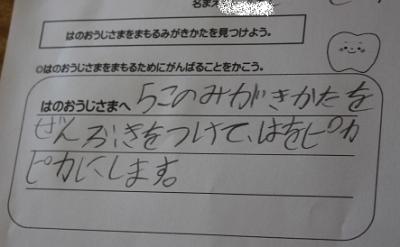 名まえ
はのおうじさまをまもるみがきかたを見つけよう。
○はのおうじさまをまもるためにがんばることをかこう。
はのおうじさまへ 5このみがきかたを
ぜんぶ、きをつけて、はをピカ
ピカにします。